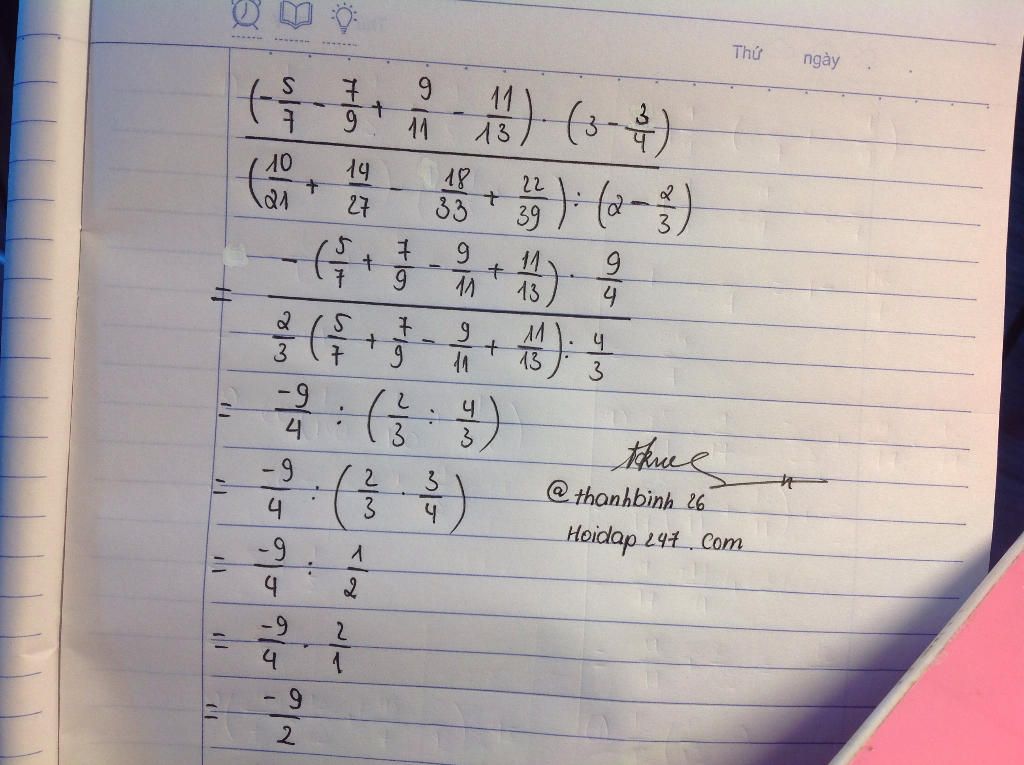 Thứ ngày . .
(-5/7 - 7/9 + 9/11 - 11/13) · (3 - 3/4)
(10/21 + 14/27 - 18/33 + 22/39) : (2 - 2/3)
= -(5/7 + 7/9 - 9/11 + 11/13) · 9/4
2/3 (5/7 + 7/9 - 9/11 + 11/13) : 4/3
= -9/4 : (2/3 : 4/3)
= -9/4 : (2/3 · 3/4)
@thanhbinh 26
Hoidap 247 . Com
= -9/4 : 1/2
= -9/4 · 2/1
= -9/2